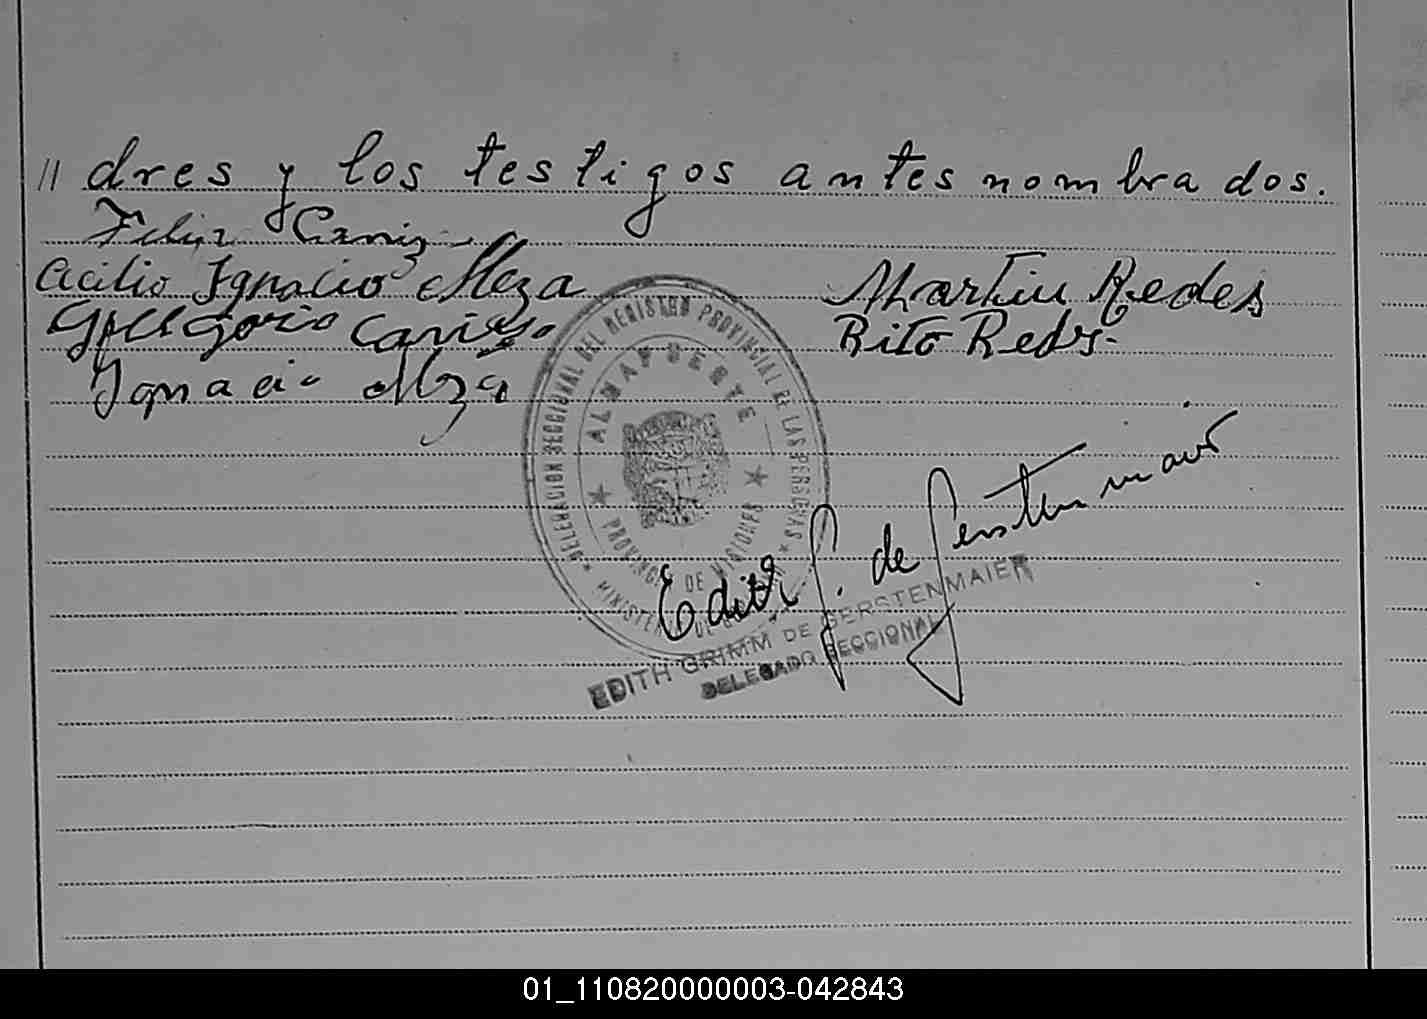 // dres y los testigos antes nombrados.
Acilio Ignacio Meza
Martin Redes
Gregorio
Rito Redes.
Ignacio Meza
* DELEGACION SECCIONAL DEL REGISTRO PROVINCIAL DE LAS PERSONAS *
ALMAFUERTE
PROVINCIA DE MISIONES
Edith G. de Gerstenmaier
EDITH GRIMM DE GERSTENMAIER
DELEGADO SECCIONAL
01_110820000003-042843